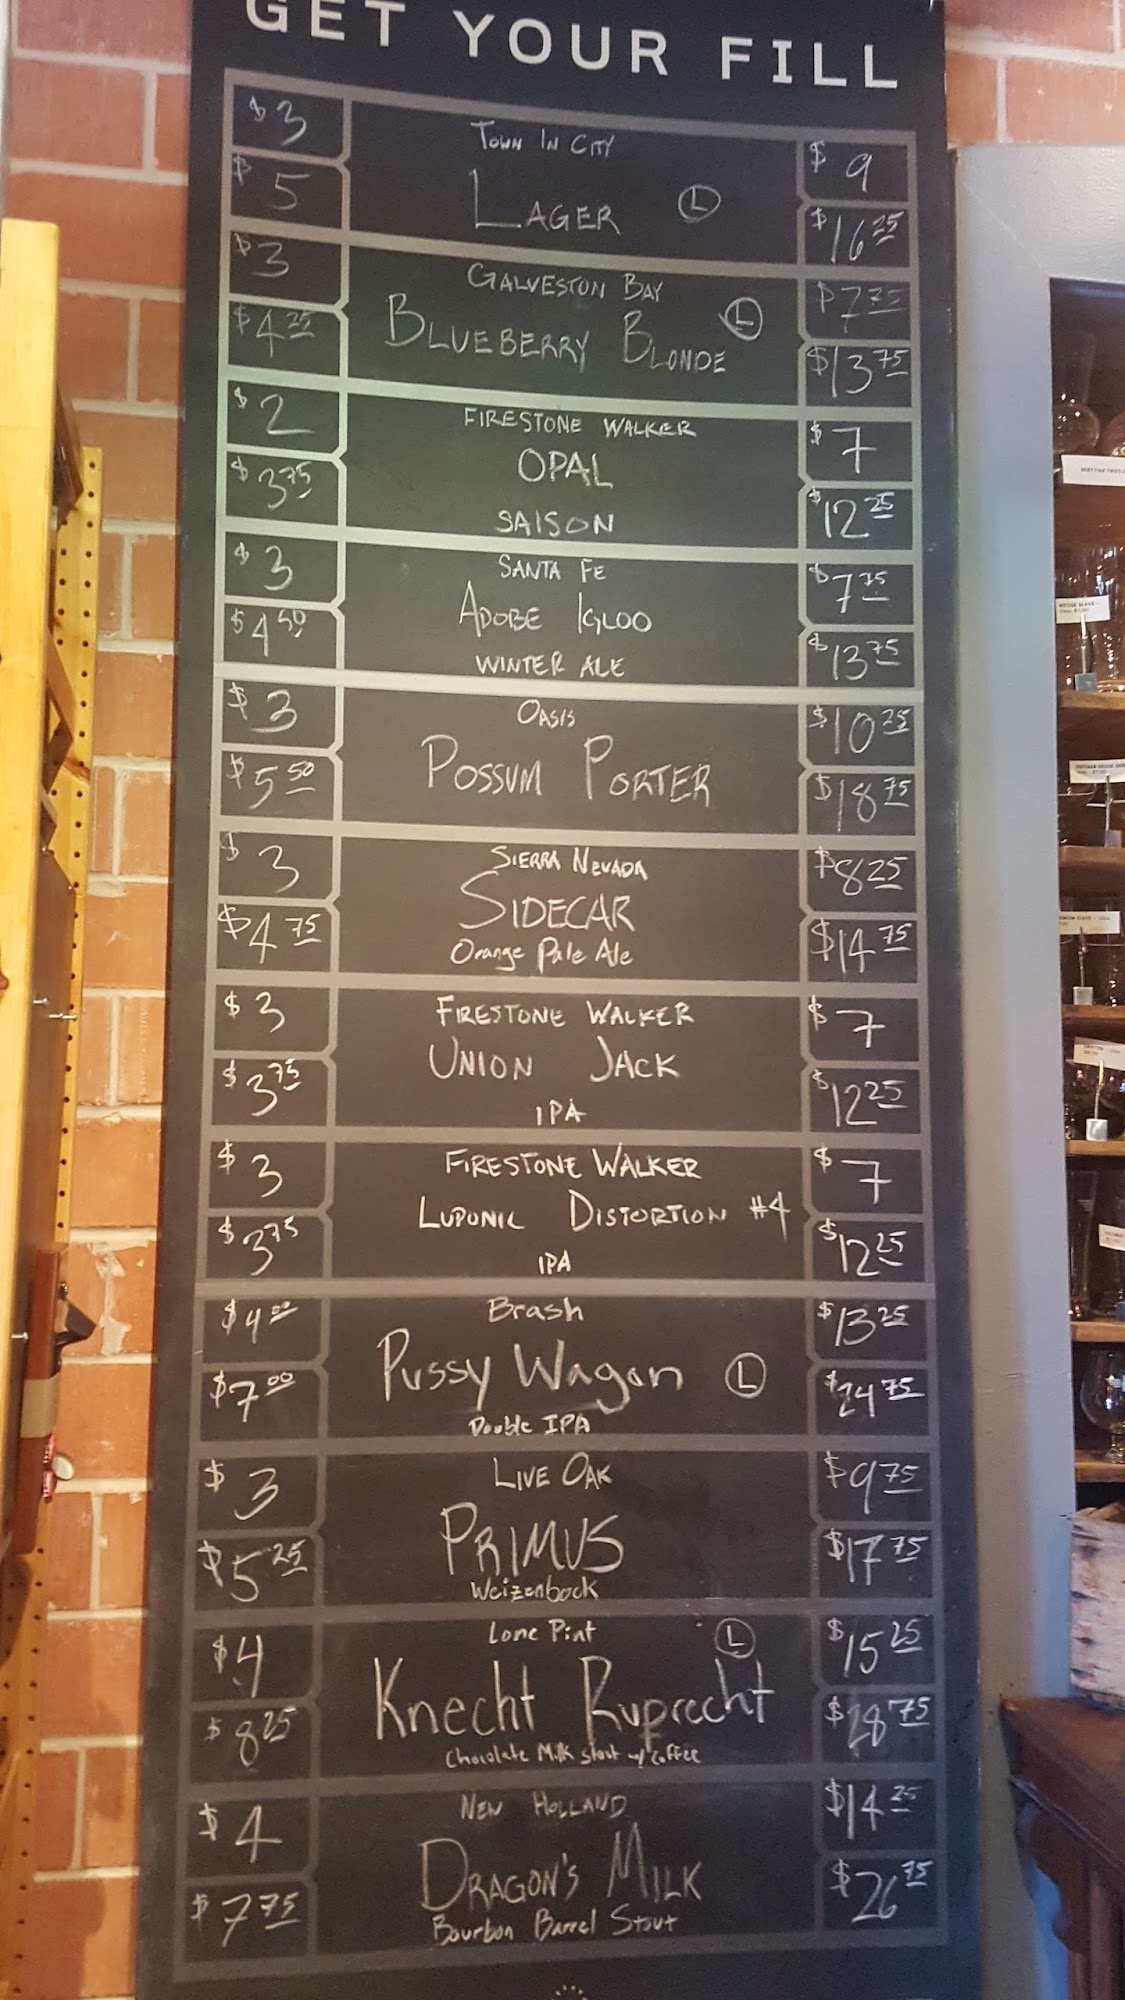 GET YOUR FILL
$3
$5
TOWN IN CITY
LAGER L
$9
$16 25
$3
$4 25
GALVESTON BAY
BLUEBERRY BLONDE L
$7 75
$13 75
$2
$3 75
FIRESTONE WALKER
OPAL
SAISON
$7
$12 25
$3
$4 50
SANTA FE
ADOBE IGLOO
WINTER ALE
$7 75
$13 75
$3
$5 50
OASIS
POSSUM PORTER
$10 25
$18 75
$3
$4 75
SIERRA NEVADA
SIDECAR
Orange Pale Ale
$8 25
$14 75
$3
$3 75
FIRESTONE WALKER
UNION JACK
IPA
$7
$12 25
$3
$3 75
FIRESTONE WALKER
LUPONIC DISTORTION #4
IPA
$7
$12 25
$4 00
$7 00
Brash
Pussy Wagon L
Double IPA
$13 25
$24 75
$3
$5 25
LIVE OAK
PRIMUS
Weizenbock
$9 75
$17 75
$4
$8 25
Lone Pint L
Knecht Ruprecht
Chocolate Milk stout w/ coffee
$15 25
$28 75
$4
$7 75
NEW HOLLAND
DRAGON'S MILK
Bourbon Barrel Stout
$14 25
$26 75